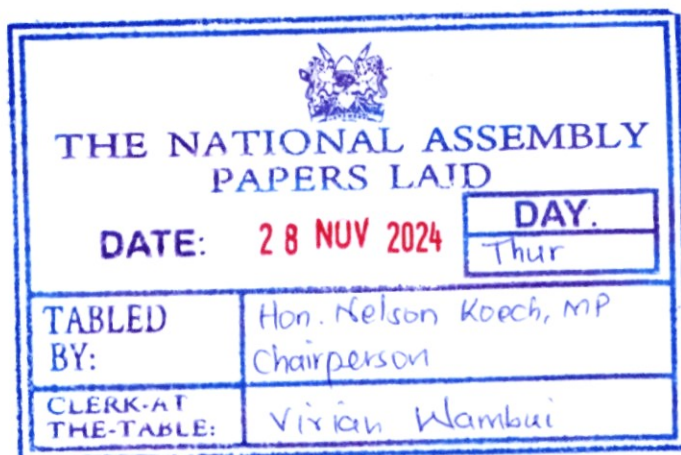 THE NATIONAL ASSEMBLY
PAPERS LAID
DATE: 28 NOV 2024
DAY.
Thur
TABLED BY:
Hon. Nelson Koech, MP
Chairperson
CLERK-AT THE-TABLE:
Vivian Wambui